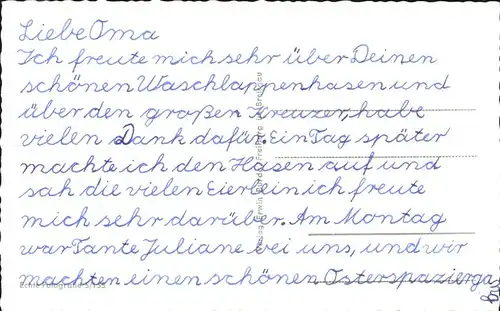 Liebe Oma
Ich freute mich sehr über Deinen
schönen Waschlappenhasen und
über den großen Kreuzer, habe
vielen Dank dafür. Ein Tag später
machte ich den Hasen auf und
sah die vielen Eierlein ich freute
mich sehr darüber. Am Montag
war Tante Juliane bei uns, und wir
machten einen schönen Osterspazierga
Echte Fotografie